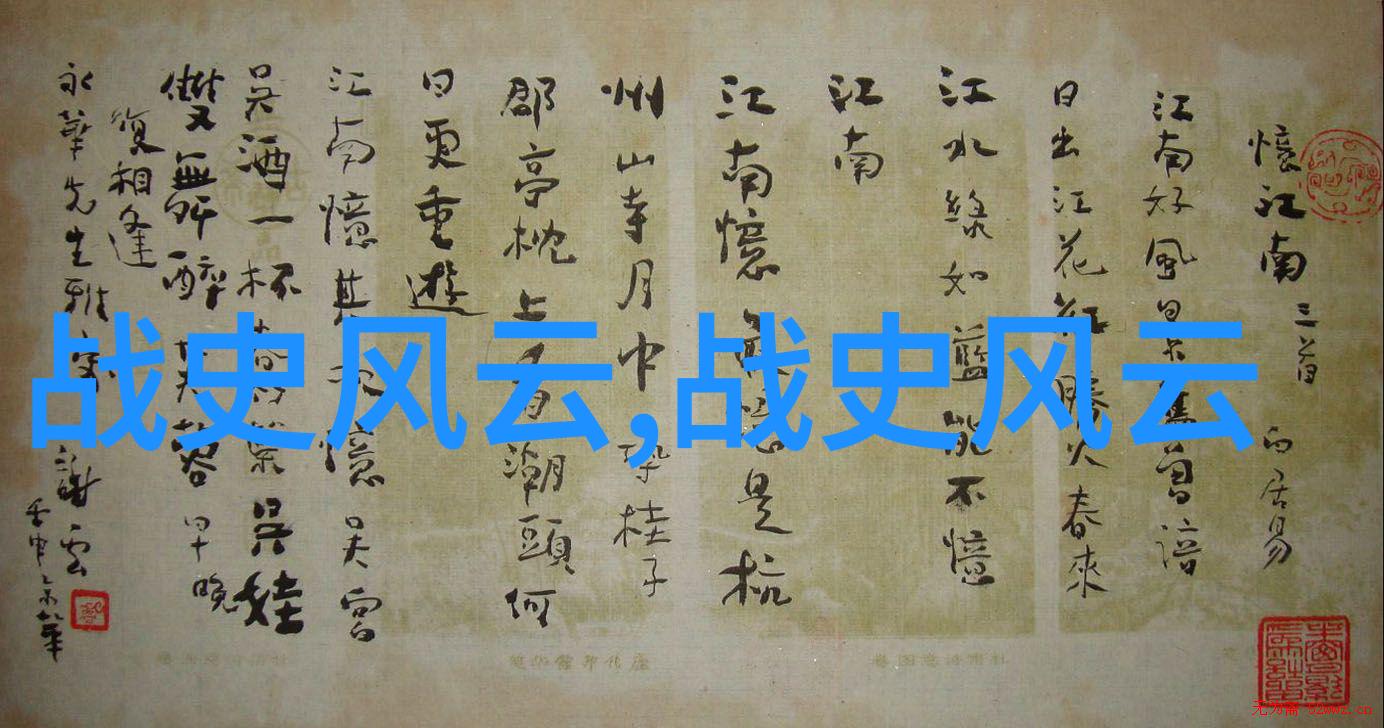 憶江南 三首 白居易
江南好風景舊曾諳
日出江花紅勝火春來
江水綠如藍能不憶
江南
江南憶最憶是杭
州山寺月中尋桂子
郡亭枕上看潮頭何
日更重遊
江南憶其次憶吳宮
吳酒一杯春竹葉吳娃
雙舞醉芙蓉早晚
復相逢
永華先生雅
謝雲
战史风云,战史风云